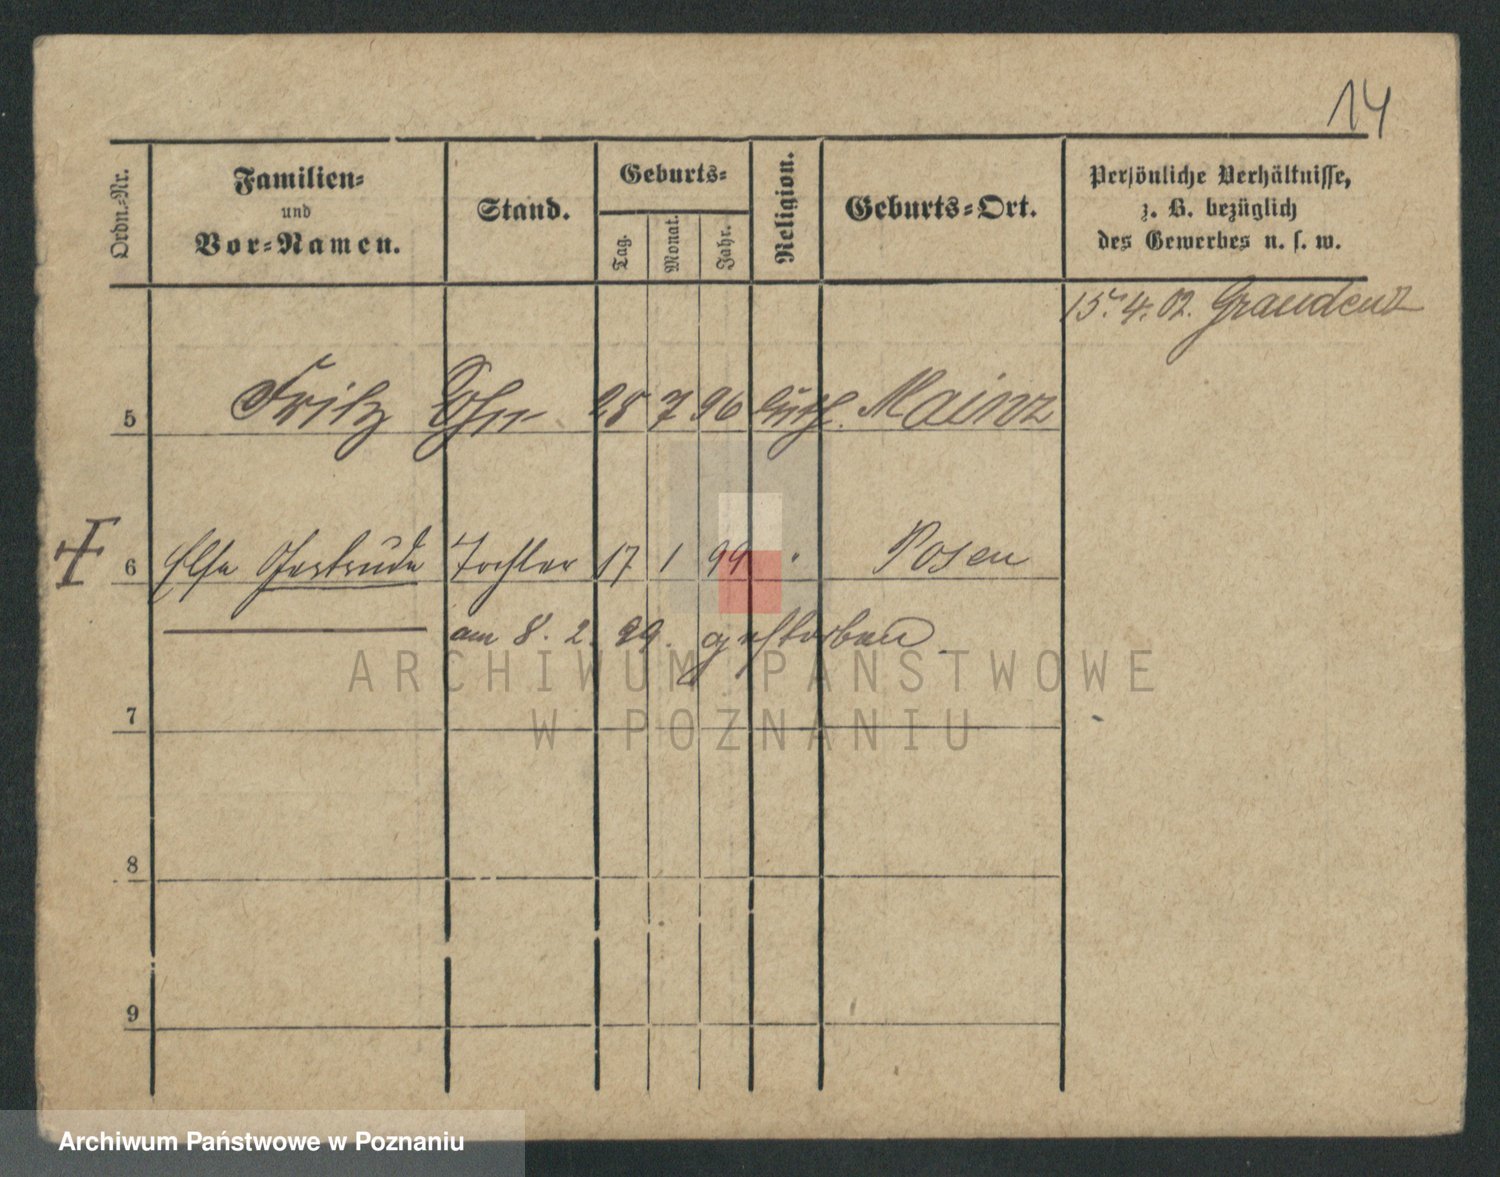 14
Ordn.-Nr.
Familien-
und
Vor-Namen.
Stand.
Geburts-
Tag.
Monat.
Jahr.
Religion.
Geburts-Ort.
Persönliche Verhältnisse,
z. B. bezüglich
des Gewerbes u. s. w.
15. 4. 02. Graudenz
5 Fritz Sohn 28 7 96 Mainz
6 Else Gertrude Tochter 17 1 99 " Posen
am 8. 2. 99. gestorben.
7
8
9
ARCHIWUM PAŃSTWOWE
W POZNANIU
Archiwum Państwowe w Poznaniu